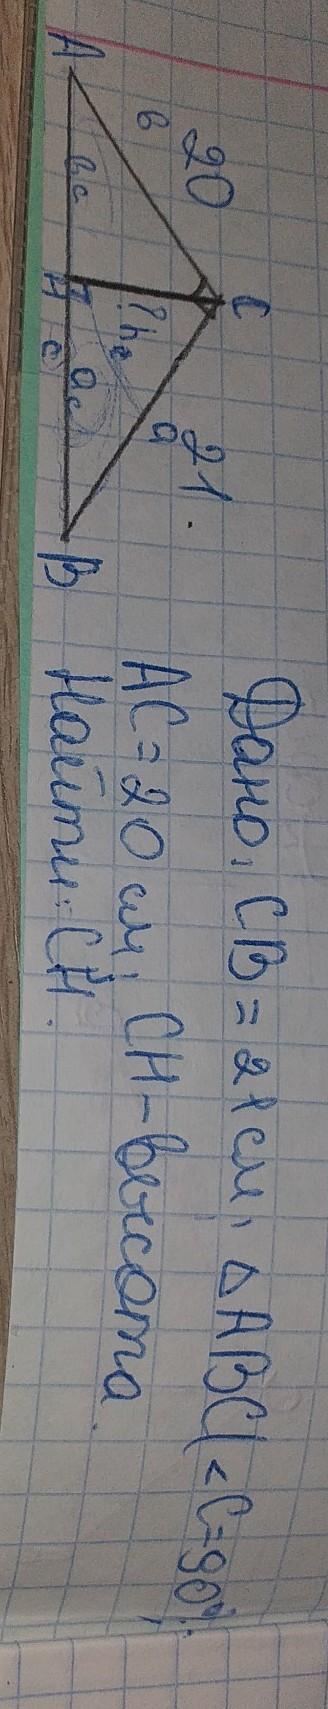 C
20
21
в
a
? hc
A
вc
H
ac
B
c
Дано: CB = 21 см, △ABC (<C=90°);
AC = 20 см, CH – высота.
Найти: CH.